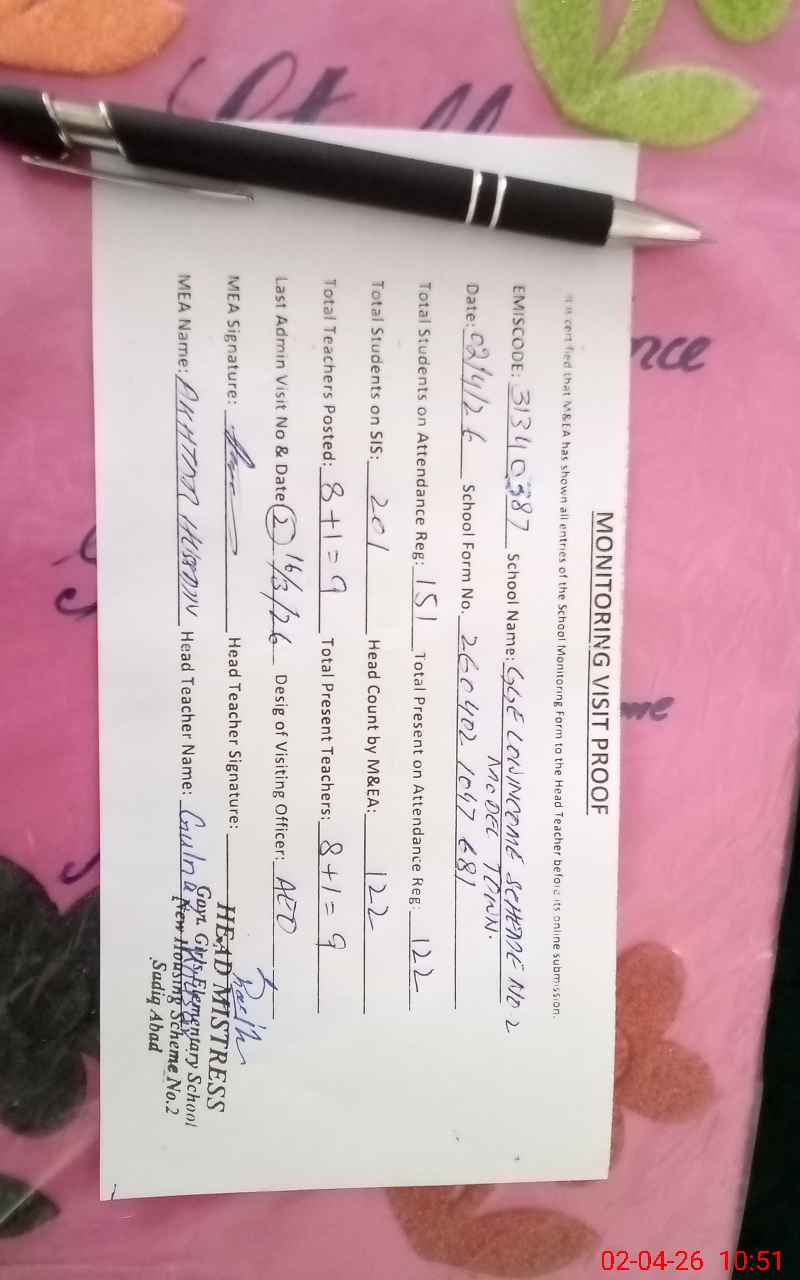 MONITORING VISIT PROOF
It is certified that M&EA has shown all entries of the School Monitoring Form to the Head Teacher before its online submission.
EMISCODE: 31340387 School Name: GGE LOWINCOME SCHEME NO 2
MODEL TOWN.
Date: 02/4/26 School Form No. 260402 1047 681
Total Students on Attendance Reg: 151 Total Present on Attendance Reg: 122
Total Students on SIS: 201 Head Count by M&EA: 122
Total Teachers Posted: 8+1=9 Total Present Teachers: 8+1=9
Last Admin Visit No & Date (2) 16/3/26 Desig of Visiting Officer: AEO
MEA Signature: Head Teacher Signature:
HEAD MISTRESS
MEA Name: AKHTAR HUSSAIN Head Teacher Name:
Govt. Girls Elementary School
New Housing Scheme No.2
Sadiq Abad
nce
me
02-04-26 10:51